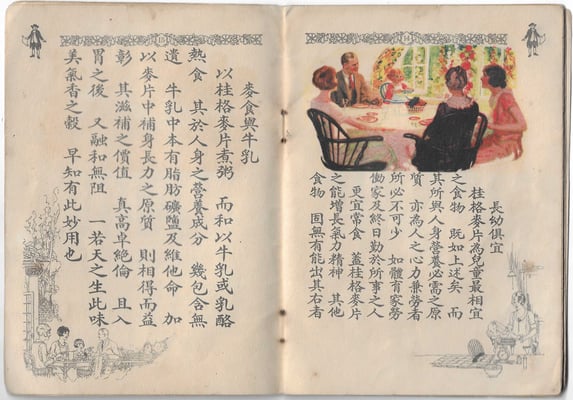 14
長幼俱宜
桂格麥片為兒童最相宜
之食物 既如上述矣 而
其所與人身營養必需之原
質 亦為人之心力兼勞者
所必不可少 如體育家勞
働家及終日勤於所事之人
更宜常食 蓋桂格麥片
之能增長氣力精神 其他
食物 固無有能出其右者
15
麥食與牛乳
以桂格麥片煮粥 而和以牛乳或乳酪
熱食 其於人身之營養成分 幾包含無
遺 牛乳中本有脂肪礦鹽及維他命 加
以麥片中補身長力之原質 則相得而益
彰 其滋補之價值 真高卓絕倫 且入
胃之後 又融和無阻 一若天之生此味
美氣香之穀 早知有此妙用也